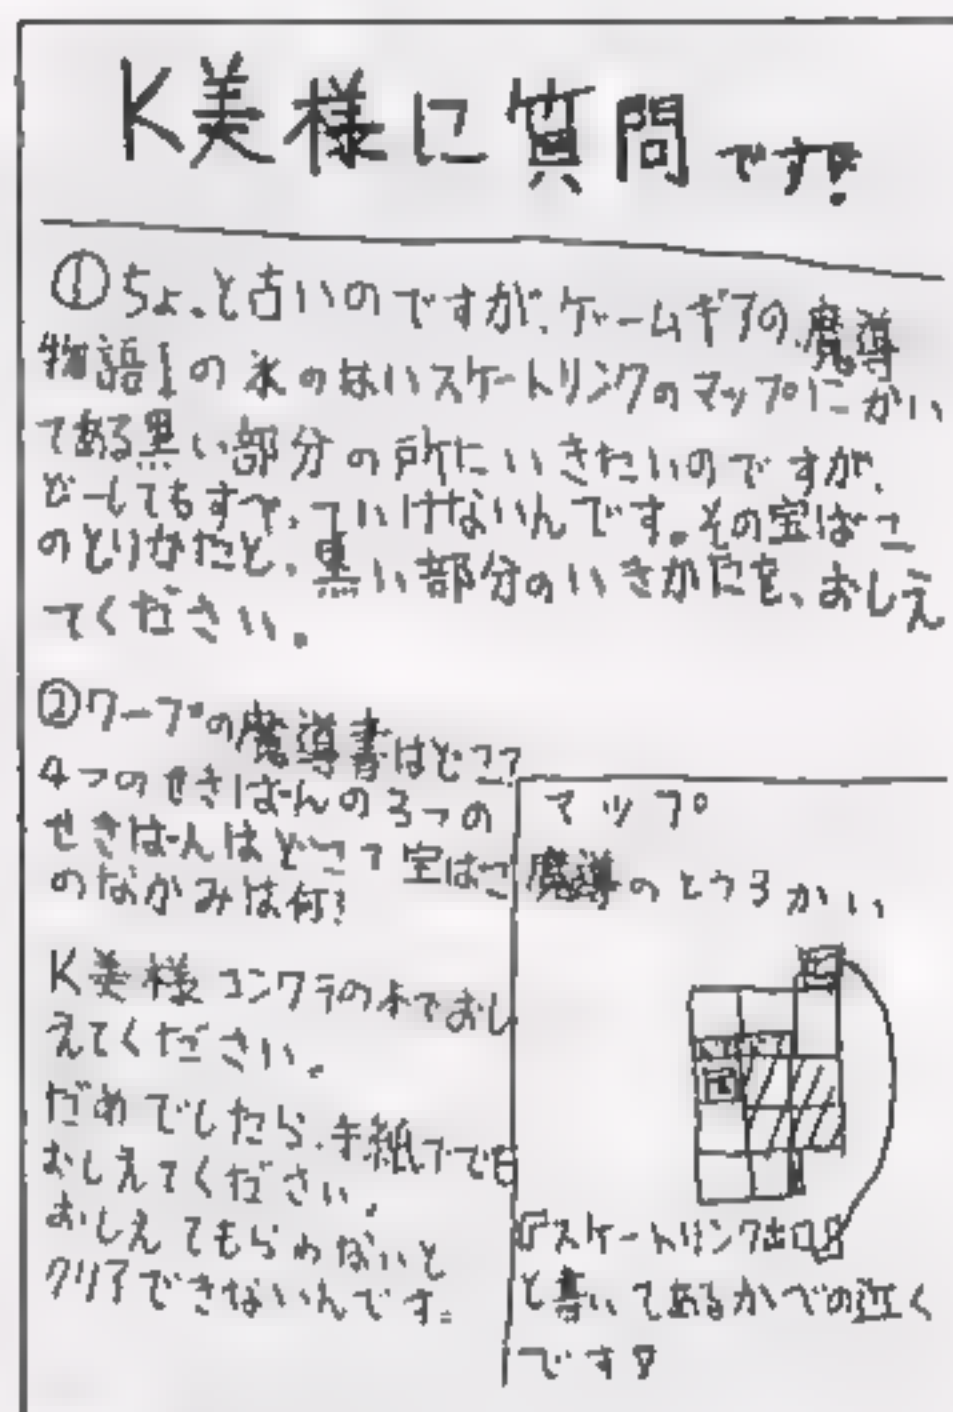 K美様に質問です!
①ちょっと古いのですが、ゲームギアの魔導
物語Iの氷のはいスケートリンクのマップにかい
てある黒い部分の所にいきたいのですが、
どーしてもすべっていけないんです。その宝ばこ
のとりかたと、黒い部分のいきかたを、おしえ
てください。
②ワープの魔導書はどこ?
4つのせきばんの3つの
せきばんはどこ?宝ばこ
のなかみは何?
K美様コンクラの本でおし
えてください。
だめでしたら、手紙ででも
おしえてください。
おしえてもらわないと
クリアできないんです。
マップ
魔導のとう3かい
『スケートリンク出口』
と書いてあるかべの近く
です!